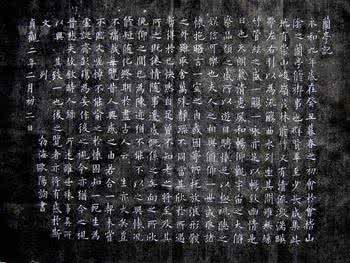 蘭亭記
永和九年歲在癸丑暮春之初會於會稽山
陰之蘭亭脩禊事也群賢畢至少長咸集此
地有崇山峻嶺茂林脩竹又有清流激湍映
帶左右引以為流觴曲水列坐其次雖無絲
竹管絃之盛一觴一詠亦足以暢敘幽情是
日也天朗氣清惠風和暢仰觀宇宙之大俯
察品類之盛所以遊目騁懷足以極視聽之
娛信可樂也夫人之相與俯仰一世或取諸
懷抱晤言一室之內或因寄所託放浪形骸
之外雖取舍萬殊靜躁不同當其欣於所遇
暫得於己快然自足曾不知老之將至及其
所之既倦情隨事遷感慨係之矣向之所欣
俛仰之間已為陳迹猶不能不以之興懷況
脩短隨化終期於盡古人云死生亦大矣豈
不痛哉每攬昔人興感之由若合一契未嘗
不臨文嗟悼不能喻之於懷固知一死生為
虛誕齊彭殤為妄作後之視今亦猶今之視
昔悲夫故敘時人錄其所述雖世殊事異所
以興懷其致一也後之覽者亦將有感於斯
文
貞觀二年二月初二日
勃海歐陽詢書